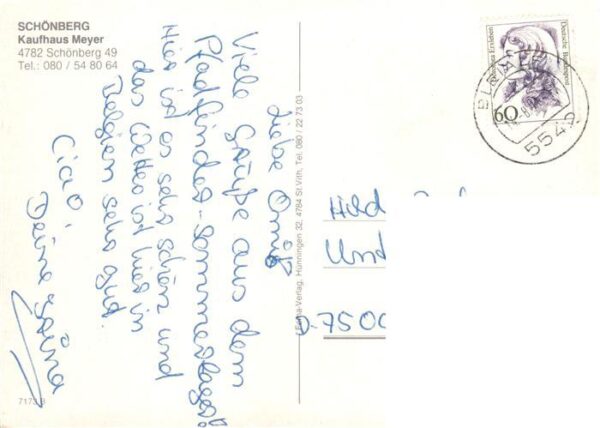 SCHÖNBERG
Kaufhaus Meyer
4782 Schönberg 49
Tel.: 080 / 54 80 64
Liebe Omi!
Viele Grüße aus dem
Pfadfinder-Sommerlager!
Hier ist es sehr schön und
das Wetter ist hier in
Belgien sehr gut.
Ciao!
Deine
7173 B
-Verlag, Hünningen 32, 4784 St. Vith, Tel. 080 / 22 73 03
Deutsche Bundespost
60
554
Hild
Und
D-7500